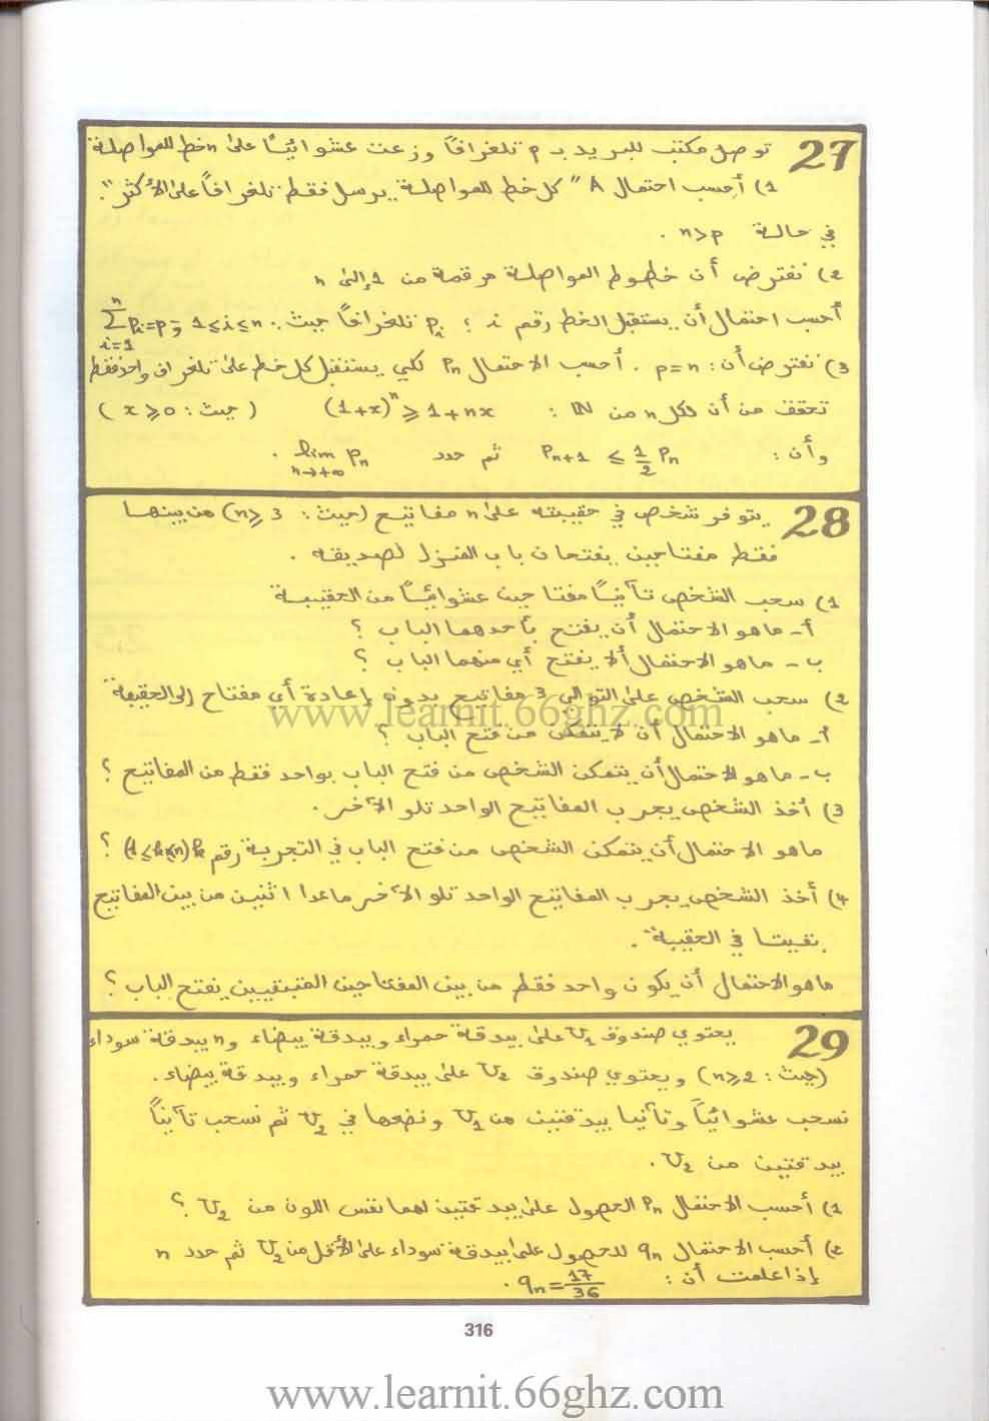 27 توصل مكتب للبريد بـ p تلغرافاً وزعت عشوائياً على n خط للمواصلة
1) أحسب احتمال A "كل خط للمواصلة يرسل فقط تلغرافاً على الأكثر".
في حالة n>p .
2) نفترض أن خطوط المواصلة مرقمة من 1 إلى n
أحسب احتمال أن يستقبل الخط رقم i ؛ Pᵢ تلغرافاً حيث: 1≤i≤n و \sum_{i=1}^{n} Pᵢ=p
3) نفترض أن: p=n . أحسب الاحتمال Pn لكي يستقبل كل خط على تلغراف واحد فقط
تحقق من أن لكل n من IN : (1+x)ⁿ ≥ 1+nx (حيث: x≥0)
وأن: Pn+1 ≤ 1/2 Pn ثم حدد lim Pn n→+∞ .
28 يتوفر شخص في حقيبته على n مفاتيح (حيث: n≥3) من بينها
فقط مفتاحين يفتحان باب المنزل لصديقه .
1) سحب الشخص تآنياً مفتاحين عشوائياً من الحقيبة
أ- ما هو الاحتمال أن يفتح بأحدهما الباب ؟
ب- ماهو الاحتمال ألا يفتح أي منهما الباب ؟
2) سحب الشخص على التوالي 3 مفاتيح بدون إعادة أي مفتاح إلى الحقيبة
أ- ماهو الاحتمال أن لا يتمكن من فتح الباب ؟
ب- ماهو الاحتمال أن يتمكن الشخص من فتح الباب بواحد فقط من المفاتيح ؟
3) أخذ الشخص يجرب المفاتيح الواحد تلو الآخر .
ماهو الاحتمال أن يتمكن الشخص من فتح الباب في التجربة رقم k (1≤k≤n) ؟
4) أخذ الشخص يجرب المفاتيح الواحد تلو الآخر ماعدا اثنين من بين المفاتيح
بقيتا في الحقيبة .
ماهو الاحتمال أن يكون واحد فقط من بين المفتاحين المتبقيين يفتح الباب ؟
29 يحتوي صندوق U₁ على بيدقة حمراء وبيدقة بيضاء و n بيدقة سوداء
(حيث: n≥2) ويحتوي صندوق U₂ على بيدقة حمراء وبيدقة بيضاء .
نسحب عشوائياً وتآنيا بيدقتين من U₁ ونضعها في U₂ ثم نسحب تآنياً
بيدقتين من U₂ .
1) أحسب الاحتمال Pn الحصول على بيدقتين لهما نفس اللون من U₂ ؟
2) أحسب الاحتمال qn للحصول على بيدقة سوداء على الأقل من U₂ ثم حدد n
إذا علمت أن : qn = 17/36 .
316
www.learnit.66ghz.com
www.learnit.66ghz.com